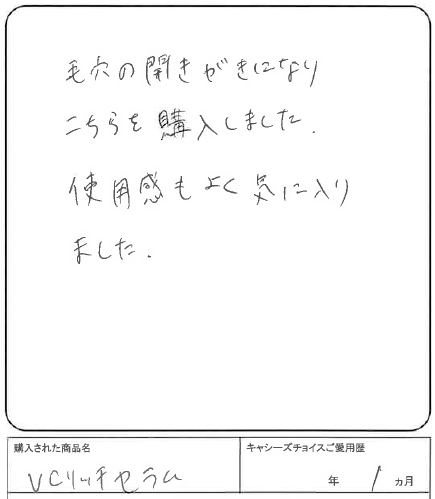 毛穴の開きがきになり
こちらを購入しました.
使用感もよく気に入り
ました.
購入された商品名
キャシーズチョイスご愛用歴
VCリッチセラム
年 1 ヵ月